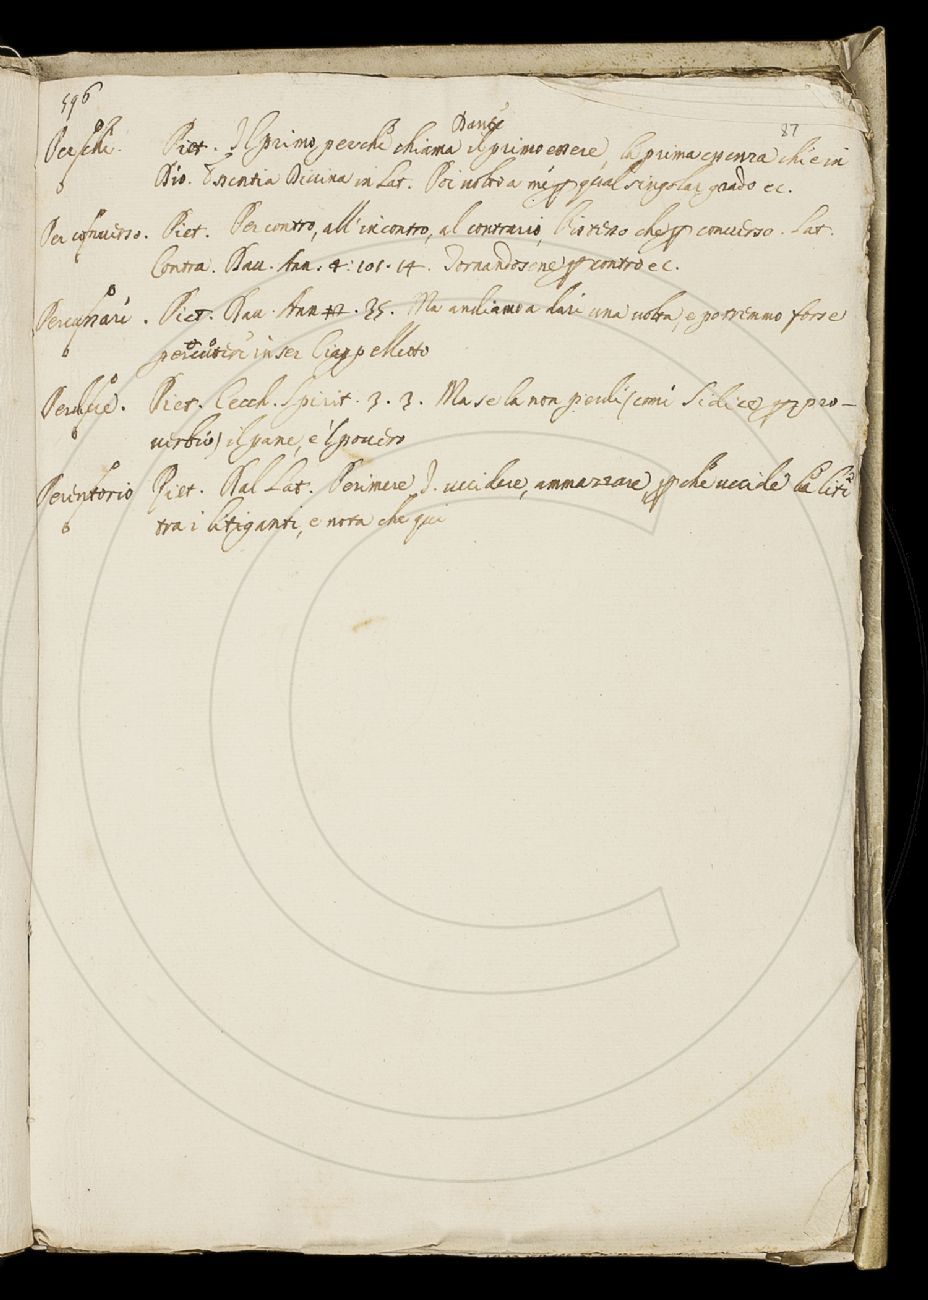 596
87
Perchè. Piet. Il primo perchè chiama Dante il primo essere, la prima essenza chi è in
Dio. Essentia Divina in Lat. Poi volto a mè qual singolar grado ec.
Per converso. Piet. Per contro, all'incontro, al contrario, converso. Lat.
Contra. Dav. Ann. 4. 101. 14. Tornandosene contro ec.
Percussare. Piet. Dav. Ann. 35. Ma andiamo a dare una volta, e potremmo forse
percuotere in ser Ciappelletto
Piet. Cecch. Spirit. 3. 3. Ma se la non (come si dice pro-
verbio) il pane, e 'l povero
Perentorio Piet. Dal Lat. Perimere I. uccidere, ammazzare che uccide la lite
tra i litiganti, e nota che qui